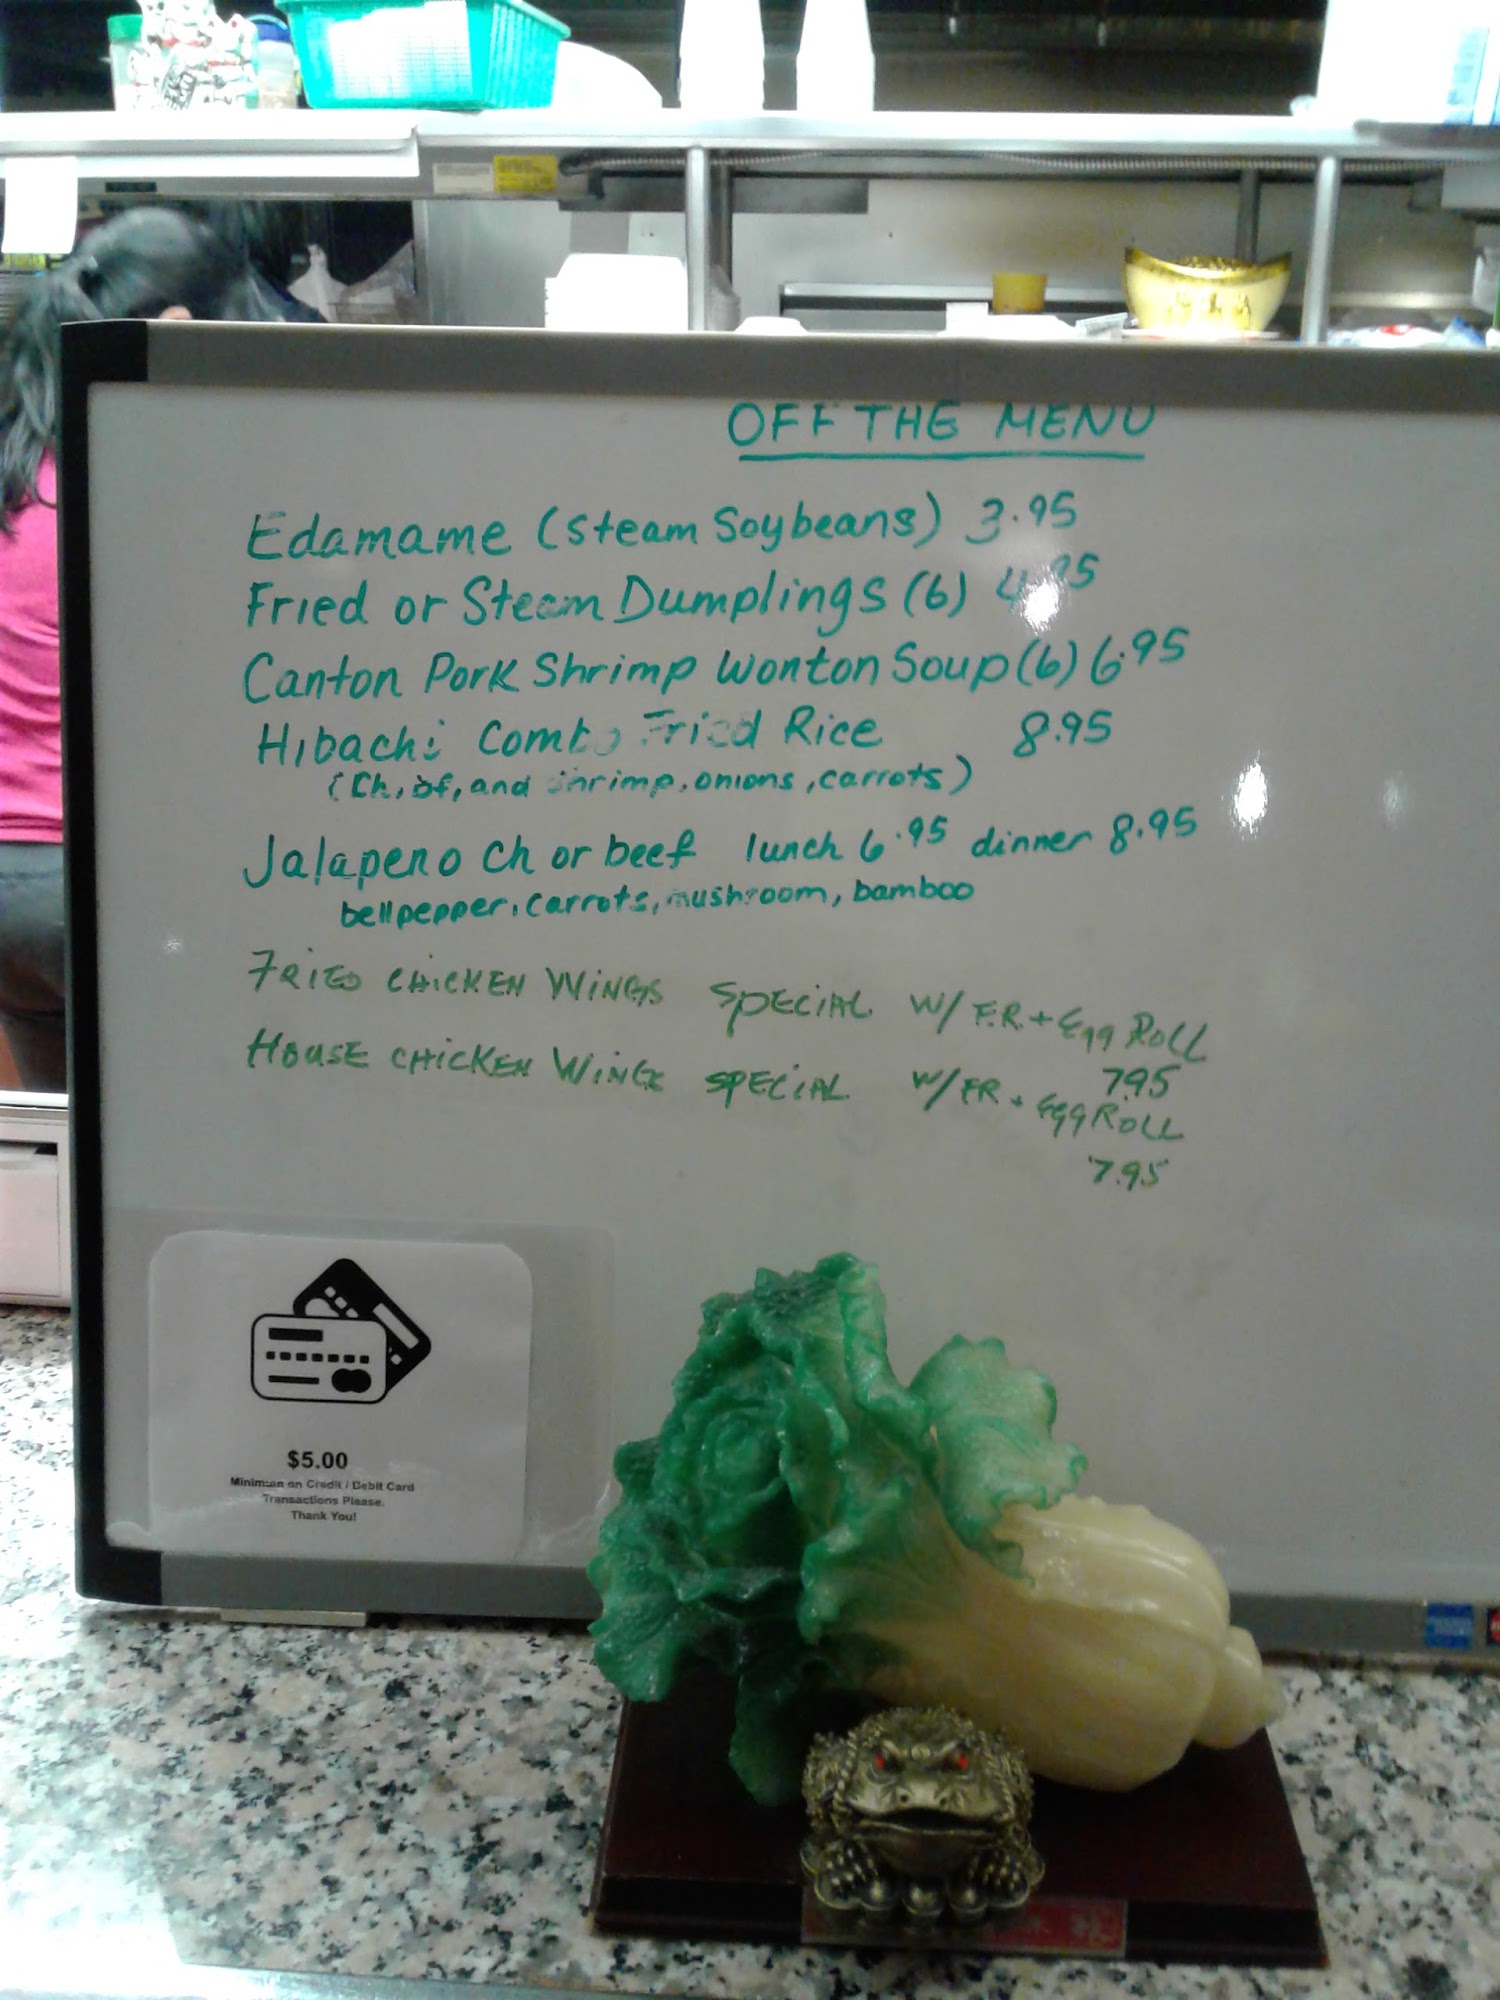 OFF THE MENU
Edamame (Steam Soybeans) 3.95
Fried or Steam Dumplings (6)
Canton Pork Shrimp Wonton Soup (6) 6.95
Hibachi Combo Fried Rice 8.95
(Ch, bf, and shrimp, onions, carrots)
Jalapeno Ch or beef lunch 6.95 dinner 8.95
bellpepper, carrots, mushroom, bamboo
FRIED CHICKEN WINGS SPECIAL W/ F.R. + Egg ROLL
7.95
HOUSE CHICKEN WINGS SPECIAL W/ FR + Egg ROLL
7.95
$5.00
Minimum on Credit / Debit Card
Transactions Please.
Thank You!